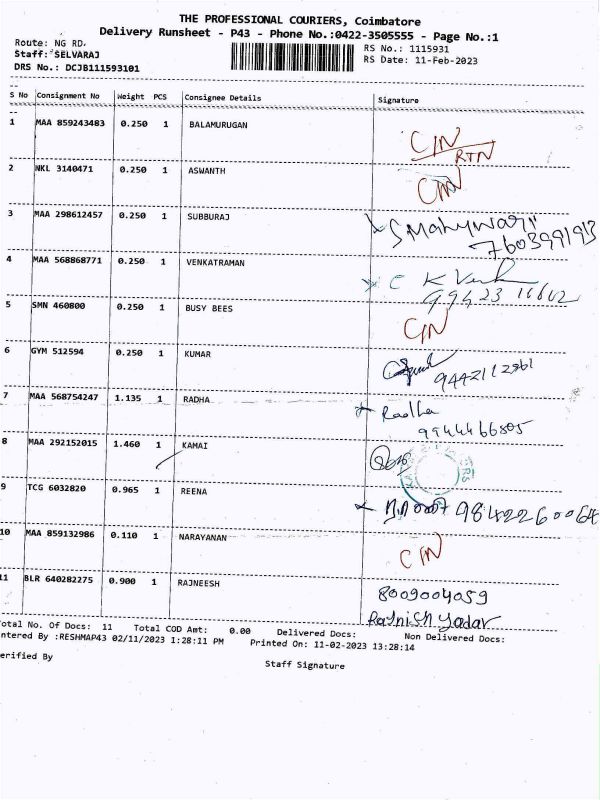 THE PROFESSIONAL COURIERS, Coimbatore
Delivery Runsheet - P43 - Phone No.:0422-3505555 - Page No.:1
Route: NG RD. RS No.: 1115931
Staff: SELVARAJ RS Date: 11-Feb-2023
DRS No.: DCJB111593101
S No Consignment No Weight PCS Consignee Details Signature
1 MAA 859243483 0.250 1 BALAMURUGAN
CIN
RTN
2 NKL 3140471 0.250 1 ASWANTH CIN
3 MAA 298612457 0.250 1 SUBBURAJ
7603991913
4 MAA 568868771 0.250 1 VENKATRAMAN
5 SMN 460800 0.250 1 BUSY BEES CIN
6 GYM 512594 0.250 1 KUMAR
7 MAA 568754247 1.135 1 RADHA Radha
9944466805
8 MAA 292152015 1.460 1 KAMAI
9 TCG 6032820 0.965 1 REENA 9842260064
10 MAA 859132986 0.110 1 NARAYANAN CIN
11 BLR 640282275 0.900 1 RAJNEESH 8009004059
Rajnish Yadav
otal No. Of Docs: 11 Total COD Amt: 0.00 Delivered Docs: Non Delivered Docs:
ntered By :RESHMAP43 02/11/2023 1:28:11 PM Printed On: 11-02-2023 13:28:14
erified By Staff Signature